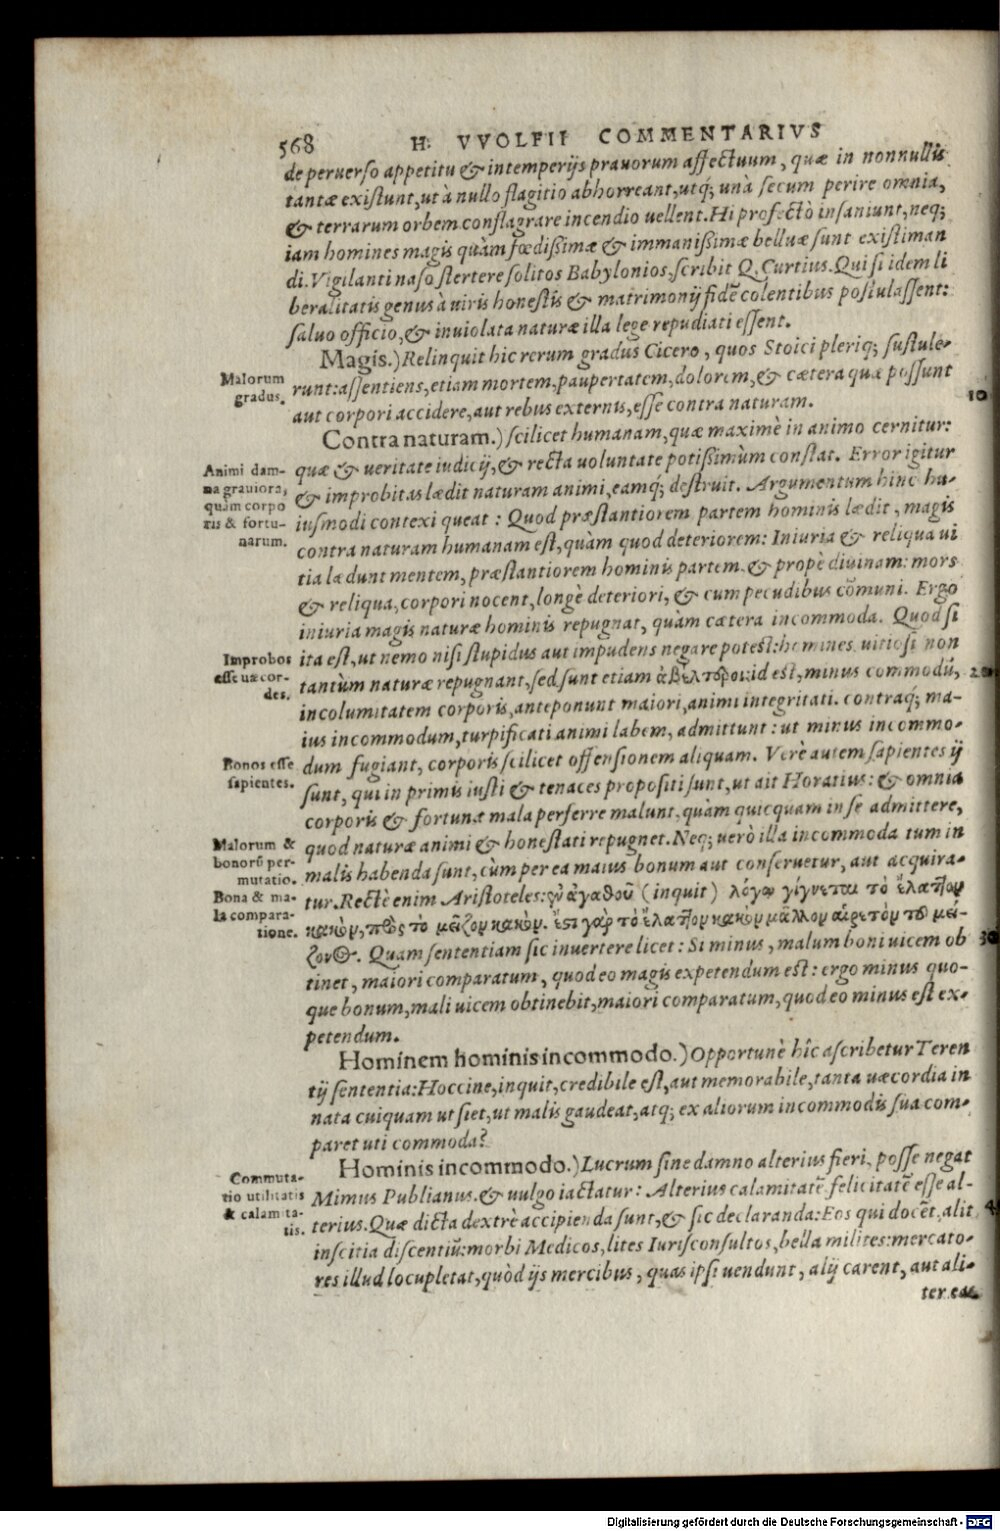 568 H. VVOLFII COMMENTARIVS
de peruerso appetitu & intemperijs prauorum affectuum, quæ in nonnullis
tantæ existunt, ut à nullo flagitio abhorreant, utq́; unà secum perire omnia,
& terrarum orbem conflagrare incendio uellent. Hi profectò insaniunt, neq;
iam homines magis quàm fœdißimæ & immanißimæ belluæ sunt existiman
di. Vigilanti naso stertere solitos Babylonios, scribit Q. Curtius. Qui si idem li
beralitatis genus à uiris honestis & matrimonij fidē colentibus postulassent:
saluo officio, & inuiolata naturæ illa lege repudiati essent.
Magis.) Relinquit hic rerum gradus Cicero, quos Stoici pleriq; sustule-
Malorum gradus.
runt: assentiens, etiam mortem, paupertatem, dolorem, & cætera quæ possunt
10
aut corpori accidere, aut rebus externis, esse contra naturam.
Contra naturam.) scilicet humanam, quæ maximè in animo cernitur:
Animi dam-
na grauiora,
quàm corpo
ris & fortu-
narum.
quæ & ueritate iudicij, & recta uoluntate potißimùm constat. Error igitur
& improbitas lædit naturam animi, eamq́; destruit. Argumentum hinc hu-
iusmodi contexi queat: Quod præstantiorem partem hominis lædit, magis
contra naturam humanam est, quàm quod deteriorem: Iniuria & reliqua ui
tia lædunt mentem, præstantiorem hominis partem, & propè diuinam: mors
& reliqua, corpori nocent, longè deteriori, & cum pecudibus cōmuni. Ergo
iniuria magis naturæ hominis repugnat, quàm cætera incommoda. Quod si
Improbos
esse uæcor-
des.
ita est, ut nemo nisi stupidus aut impudens negare potest: homines uitiosi non
tantùm naturæ repugnant, sed sunt etiam ἀβέλτεροι: id est, minus commodū,
20
incolumitatem corporis, anteponunt maiori, animi integritati. contraq́; ma-
ius incommodum, turpificati animi labem, admittunt: ut minus incommo-
Bonos esse
sapientes.
dum fugiant, corporis scilicet offensionem aliquam. Verè autem sapientes ij
sunt, qui in primis iusti & tenaces propositi sunt, ut ait Horatius: & omnia
corporis & fortunæ mala perferre malunt, quàm quicquam in se admittere,
Malorum &
bonorū per-
mutatio.
quod naturæ animi & honestati repugnet. Neq; uerò illa incommoda tum in
malis habenda sunt, cùm per ea maius bonum aut conseruetur, aut acquira-
Bona & ma-
la compara-
tione.
tur. Rectè enim Aristoteles: ἐν ἀγαθοῦ (inquit) λόγῳ γίγνεται τὸ ἔλαττον
κακὸν, πρὸς τὸ μεῖζον κακόν. ἔστι γὰρ τὸ ἔλαττον κακὸν μᾶλλον αἱρετὸν τοῦ μεί-
ζονος. Quam sententiam sic inuertere licet: Si minus, malum boni uicem ob
30
tinet, maiori comparatum, quod eo magis expetendum est: ergo minus quo-
que bonum, mali uicem obtinebit, maiori comparatum, quod eo minus est ex-
petendum.
Hominem hominis incommodo.) Opportunè hîc ascribetur Teren
tij sententia: Hoccine, inquit, credibile est, aut memorabile, tanta uæcordia in
nata cuiquam ut siet, ut malis gaudeat, atq; ex aliorum incommodis sua com-
paret uti commoda?
Hominis incommodo.) Lucrum sine damno alterius fieri, posse negat
Commuta-
tio utilitatis
& calamita-
tis.
Mimus Publianus. & uulgo iactatur: Alterius calamitatē felicitatē esse al-
terius. Quæ dicta dextrè accipienda sunt, & sic declaranda: Eos qui docēt, alit
inscitia discentiū: morbi Medicos, lites Iurisconsultos, bella milites: mercato-
res illud locupletat, quòd ijs mercibus, quas ipsi uendunt, alij carent, aut ali-
ter eas
Digitalisierung gefördert durch die Deutsche Forschungsgemeinschaft - DFG